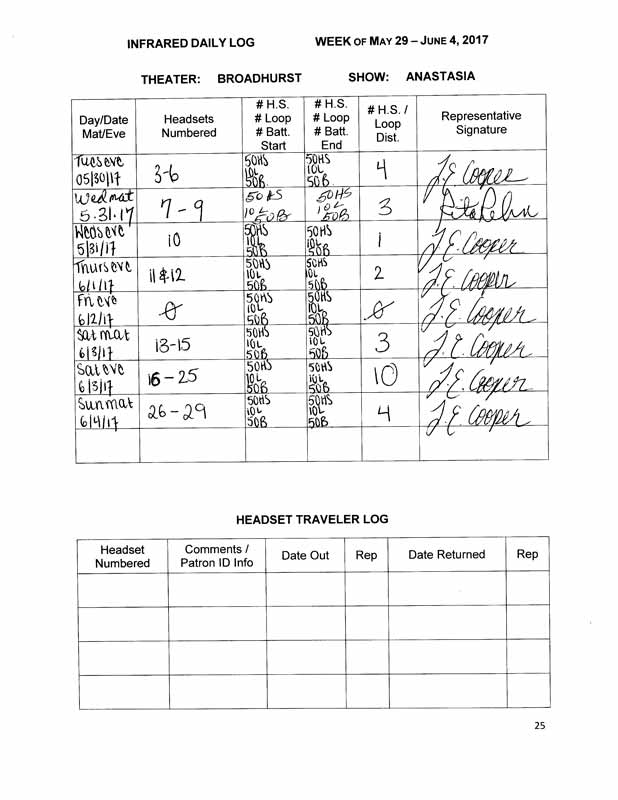 INFRARED DAILY LOG WEEK OF MAY 29 – JUNE 4, 2017
THEATER: BROADHURST SHOW: ANASTASIA
Day/Date Mat/Eve Headsets Numbered # H.S. # Loop # Batt. Start # H.S. # Loop # Batt. End # H.S. / Loop Dist. Representative Signature
Tues eve 05/30/17 3-6 50HS 10L 50B 50HS 10L 50B 4 J.E. Cooper
Wed mat 5.31.17 7-9 50HS 10L 50B 50HS 10L 50B 3
Weds eve 5/31/17 10 50HS 10L 50B 50HS 10L 50B 1 J.E. Cooper
Thurs eve 6/1/17 11 & 12 50HS 10L 50B 50HS 10L 50B 2 J.E. Cooper
Fri eve 6/2/17 0 50HS 10L 50B 50HS 10L 50B 0 J.E. Cooper
Sat mat 6/3/17 13-15 50HS 10L 50B 50HS 10L 50B 3 J.E. Cooper
Sat eve 6/3/17 16-25 50HS 10L 50B 50HS 10L 50B 10 J.E. Cooper
Sun mat 6/4/17 26-29 50HS 10L 50B 50HS 10L 50B 4 J.E. Cooper
HEADSET TRAVELER LOG
Headset Numbered Comments / Patron ID Info Date Out Rep Date Returned Rep
25